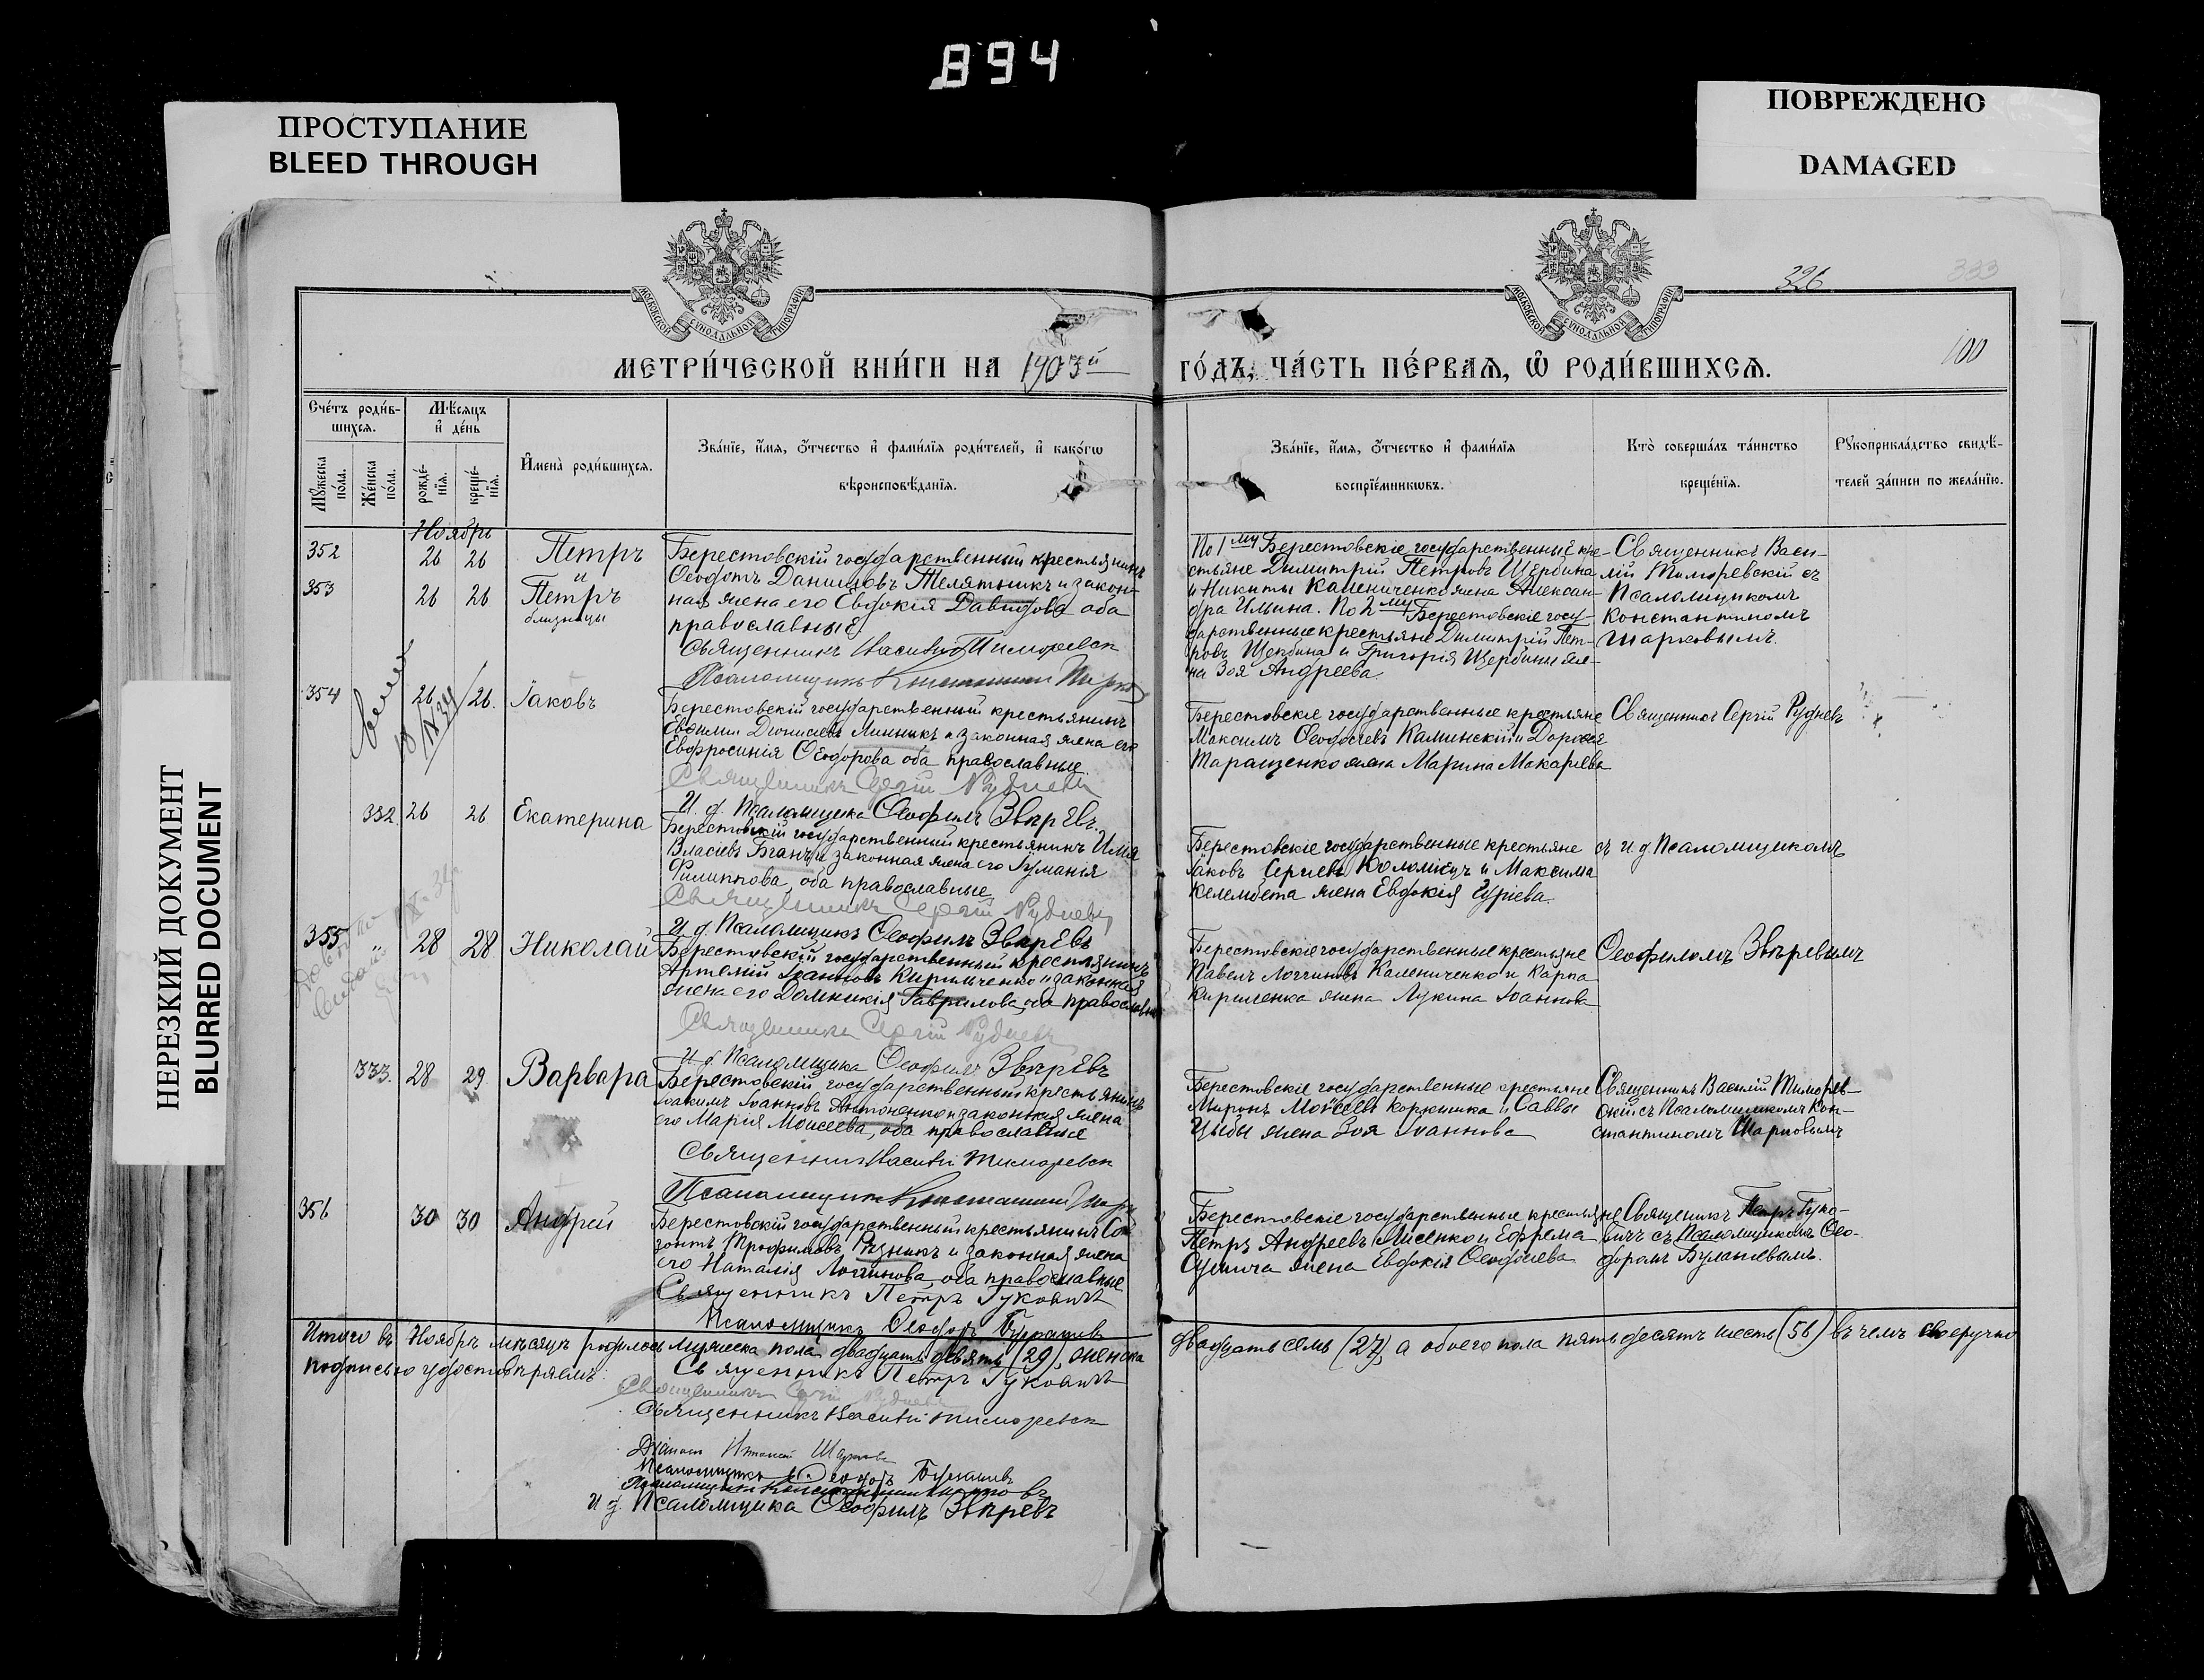 894
ПРОСТУПАНИЕ
BLEED THROUGH
ПОВРЕЖДЕНО
DAMAGED
НЕРЕЗКИЙ ДОКУМЕНТ
BLURRED DOCUMENT
МОСКОВСКОЙ СѴНОДАЛЬНОЙ ТИПОГРАФІИ
МОСКОВСКОЙ СѴНОДАЛЬНОЙ ТИПОГРАФІИ
326
333
100
МЕТРИ́ЧЕСКОЙ КНИ́ГИ НА 1903й ГО́ДЪ, ЧА́СТЬ ПЕ́РВАЯ, Ѿ РОДИ́ВШИХСЯ.
Сче́тъ роди́в-
шихся.
Мѣ́сяцъ
и҆ де́нь
Мꙋ́жеска
по́ла.
Же́нска
по́ла.
рожде́-
нїя.
креще́-
нїя.
И҆мена̀ роди́вшихся.
Зва́нїе, и҆́мя, ѻ҆́тчество и҆ фами́лїя роди́телей, и҆ како́гѡ
вѣроисповѣ́данїя.
Зва́нїе, и҆́мя, ѻ҆́тчество и҆ фами́лїя
воспрїе́мникѡвъ.
Кто̀ соверша́лъ та́инство
креще́нїя.
Рꙋкоприкла́дство свидѣ́-
телей за́писи по жела́нїю.
Ноябрь
352 26 26 Петръ
и
353 26 26 Петръ
близнецы
Берестовскій государственный крестьянинъ
Ѳеодотъ Даниловъ Телятникъ и закон-
ная жена его Евдокія Давидова оба
православные.
Священникъ Василій Тиморевск
Псаломщикъ Константинъ Шарков
По 1му Берестовскіе государственные кре-
стьяне Димитрій Петровъ Щербина
и Никиты Калениченко жена Алексан-
дра Ильина. По 2му Берестовскіе госу-
дарственные крестьяне Димитрій Пет-
ровъ Щербина и Григорія Щербины же-
на Зоя Андреева
Священникъ Васи-
лій Тиморевскій съ
Псаломщикомъ
Константиномъ
Шарковымъ.
354 26 26. Іаковъ
Берестовскій государственный крестьянинъ
Евѳимій Діонисіевъ Линникъ и законная жена его
Евфросинія Ѳеодорова оба православные.
Священникъ Сергій Рудневъ
И. д. Псаломщика Ѳеофилъ Звѣревъ.
Берестовскіе государственные крестьяне
Максимъ Ѳеодосіевъ Калинскій и Дороѳея
Таращенко жена Марина Макаріева
Священникъ Сергій Рудневъ
332. 26 26 Екатерина
Берестовскій государственный крестьянинъ Илія
Власіевъ Бганъ и законная жена его Іуліанія
Филиппова, оба православные
Священникъ Сергій Рудневъ
И. д. Псаломщикъ Ѳеофилъ Звѣревъ
Берестовскіе государственные крестьяне
Іаковъ Сергіевъ Коломіецъ и Максима
Келембета жена Евдокія Гуріева.
съ и. д. Псаломщикомъ
355 " 28 28 Николай
Берестовскій государственный крестьянинъ
Артемій Іоанновъ Кириченко и законная
жена его Домникія Гаврилова, оба православные
Священникъ Сергій Рудневъ
И. д. Псаломщика Ѳеофилъ Звѣревъ
Берестовскіе государственные крестьяне
Павелъ Логгиновъ Калениченко и Карпа
Кириченка жена Лукина Іоаннова
Ѳеофиломъ Звѣревымъ
333. 28 29 Варвара
Берестовскій государственный крестьянинъ
Іоакимъ Іоанновъ Антоненко и законная жена
его Марія Моисеева, оба православные
Священникъ Василій Тиморевск
Псаломщикъ Константинъ Шарк
Берестовскіе государственные крестьяне
Миронъ Моѵсеевъ Коржика и Саввы
Цыбы жена Зоя Іоаннова
Священникъ Василій Тиморев-
скій съ Псаломщикомъ Кон-
стантиномъ Шарковымъ
356 30 30 Андрей
Берестовскій государственный крестьянинъ Со-
зонтъ Трофимовъ Рѣзникъ и законная жена
его Наталія Логгинова, оба православные
Священникъ Петръ Гуковичъ
Псаломщикъ Ѳеодоръ Булашевъ
Берестовскіе государственные крестьяне
Петръ Андреевъ Лисенко и Ефрема
жена Евдокія Ѳеодосіева
Священникъ Петръ Гуко-
вичъ съ Псаломщикомъ Ѳео-
доромъ Булашевымъ.
Итого въ Ноябрѣ мѣсяцѣ родилось мужеска пола двадцать девять (29), женска двадцать семь (27), а обоего пола пятьдесятъ шесть (56) въ чемъ своеручно
подписью удостовѣряемъ:
Священникъ Петръ Гуковичъ
Священникъ Сергій Рудневъ
Священникъ Василій Тиморевск
Діаконъ
Псаломщикъ Ѳеодоръ Булашевъ
Псаломщикъ Константинъ Шарковъ
И. д. Псаломщика Ѳеофилъ Звѣревъ